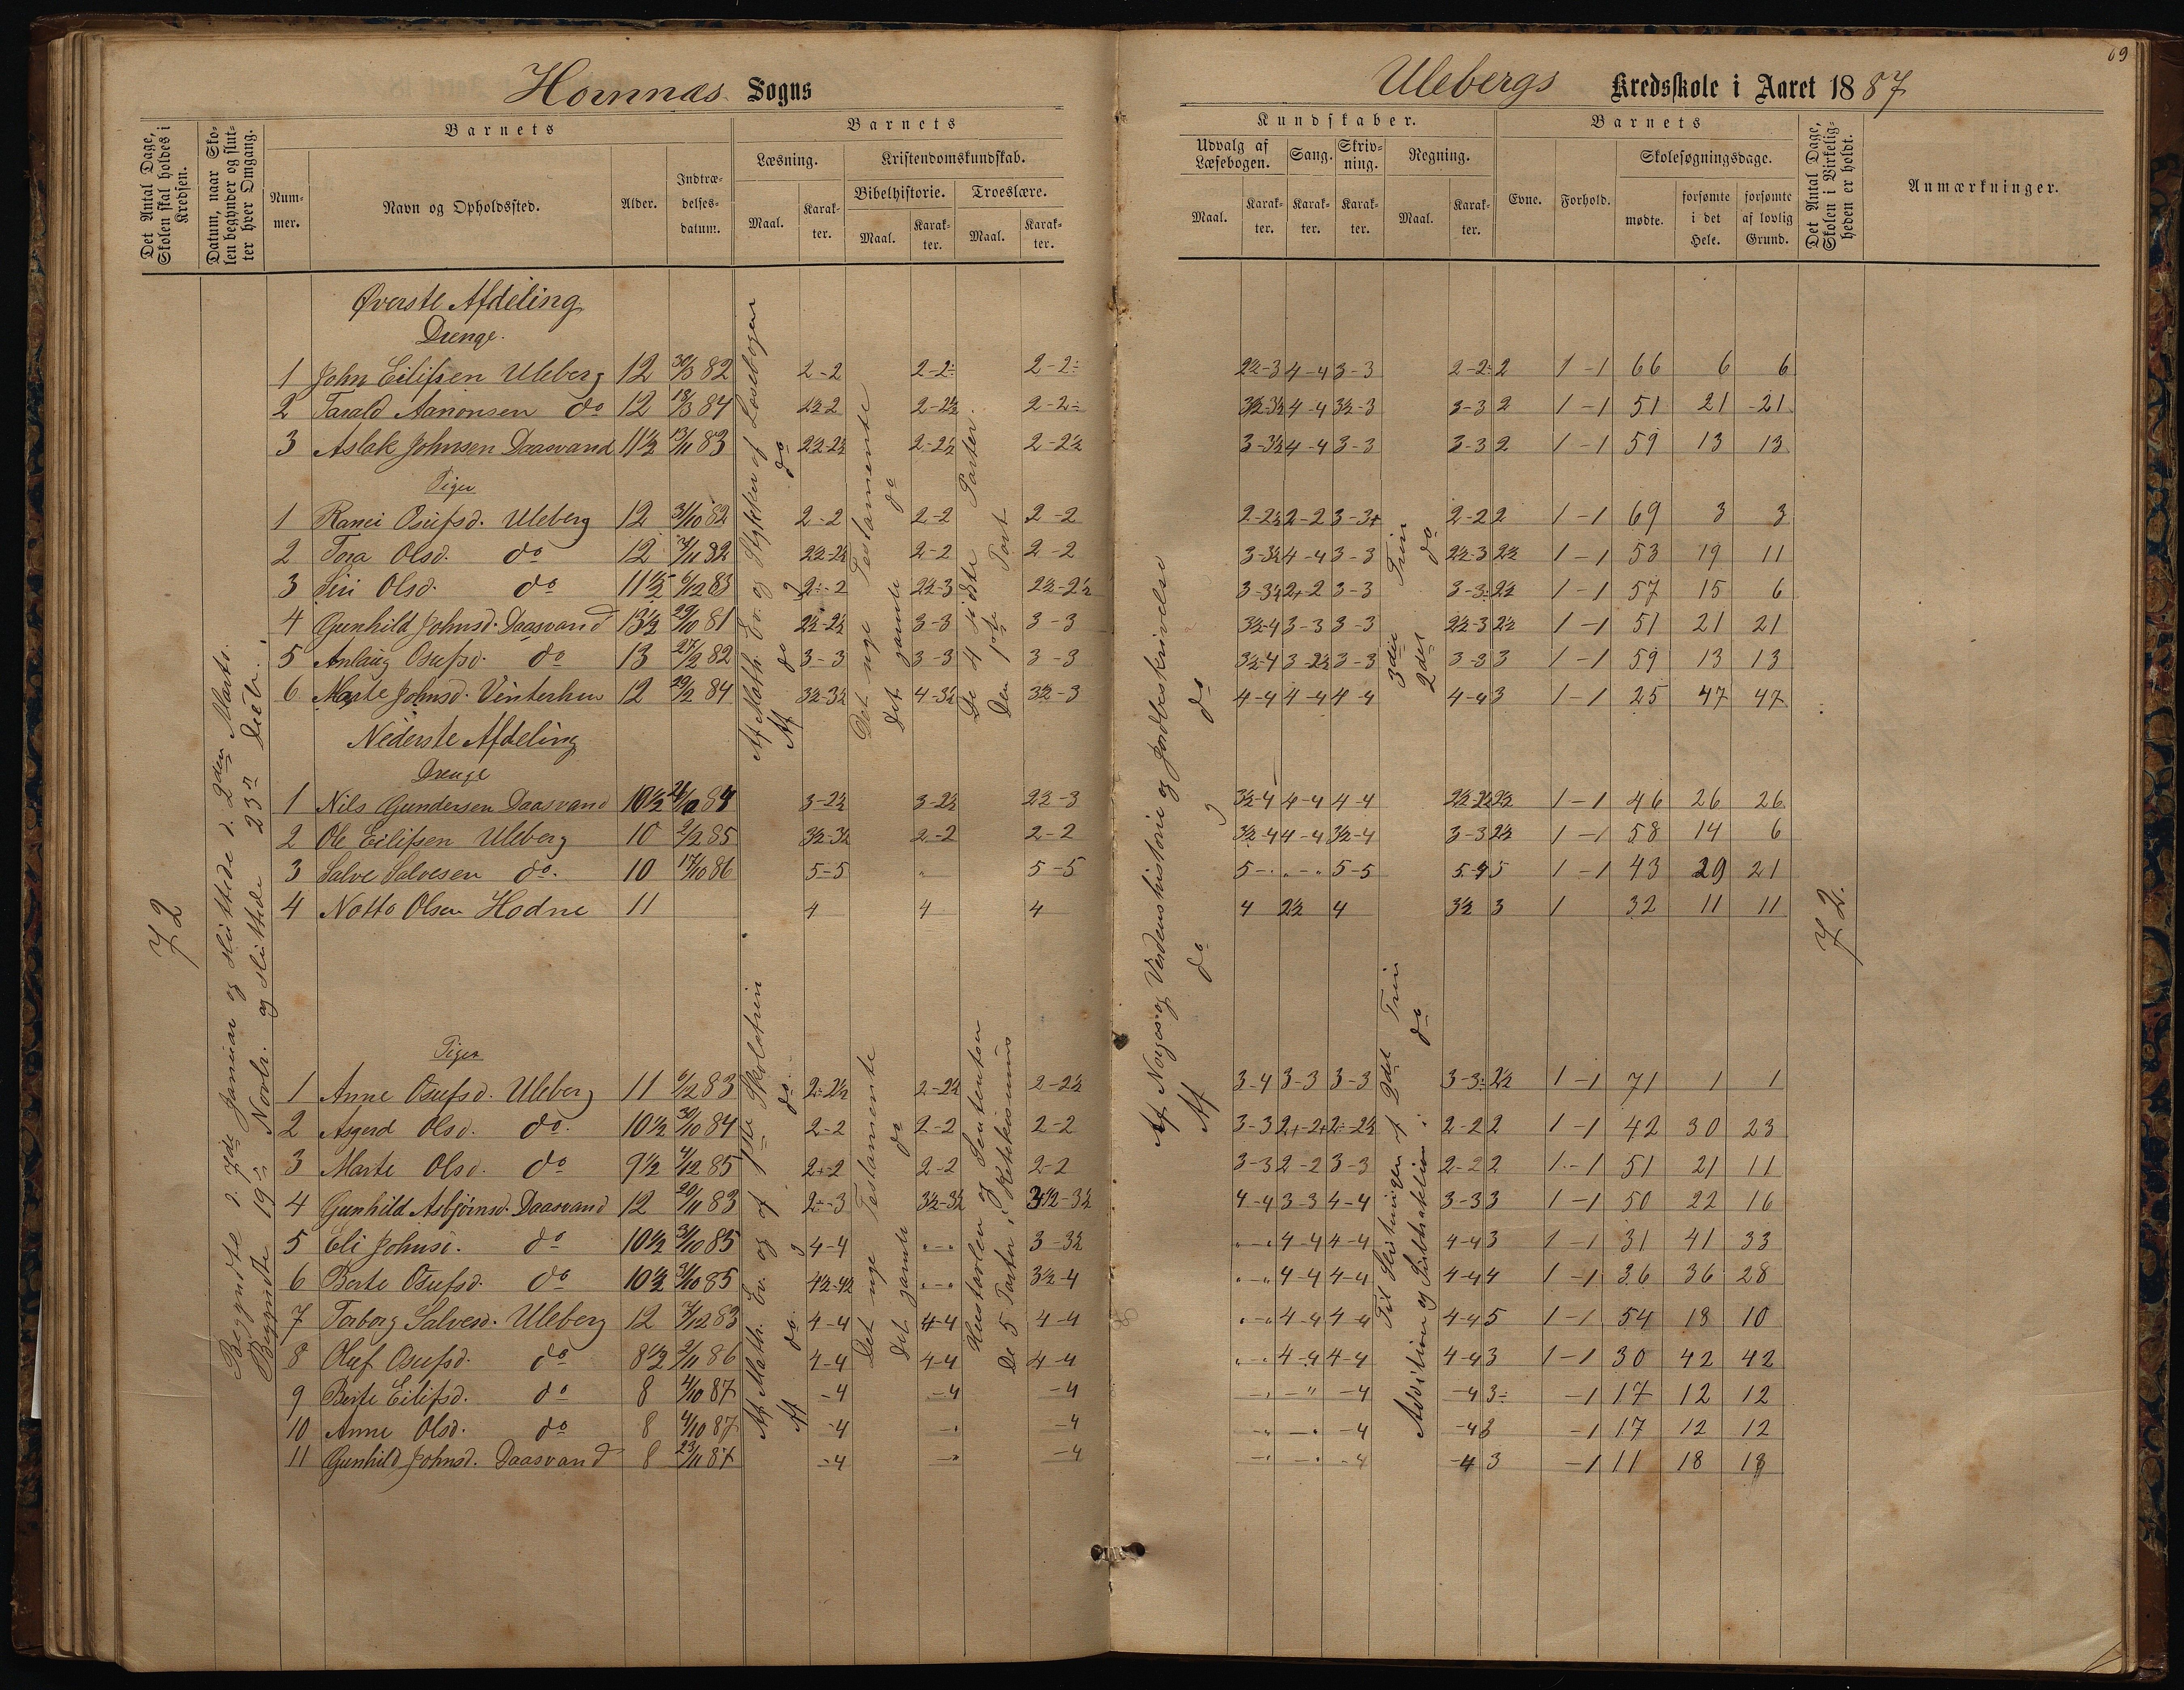 69
Hornnæs Sogns
Ulebergs Kredsskole i Aaret 1887
Det Antal Dage, Skolen skal holdes i Kredsen.
Datum, naar Skolen begynder og slutter hver Omgang.
Barnets
Nummer.
Navn og Opholdssted.
Alder.
Indtrædelsesdatum.
Barnets
Læsning.
Maal.
Karakter.
Kristendomskundskab.
Bibelhistorie.
Maal.
Karakter.
Troeslære.
Maal.
Karakter.
Kundskaber.
Udvalg af Læsebogen.
Maal.
Karakter.
Sang.
Karakter.
Skrivning.
Karakter.
Regning.
Maal.
Karakter.
Barnets
Evne.
Forhold.
Skolesøgningsdage.
mødte.
forsømte i det Hele.
forsømte af lovlig Grund.
Det Antal Dage, Skolen i Virkeligheden er holdt.
Anmærkninger.
72
Begyndte d. 7de Januar og sluttede d. 2den Marts.
Begyndte 19de Novbr. og sluttede 23de Decbr.
Øverste Afdeling
Drenge.
1 John Eilifsen Uleberg 12 30/3 82 2-2 2-2÷ 2-2÷ 2½-3 4-4 3-3 2-2÷ 2 1-1 66 6 6
2 Tarald Aanonsen do 12 18/3 84 2½-2 2-2½ 2-2÷ 3½-3½ 4-4 3½-3 3-3 2 1-1 51 21 21
3 Aslak Johnsen Daasvand 11½ 13/11 83 2½-2½ 2-2½ 2-2½ 3-3½ 4-4 3-3 3-3 2 1-1 59 13 13
Piger
1 Ranei Osufsd. Uleberg 12 31/10 82 2-2 2-2 2-2 2-2½ 2-2 3-3+ 2-2 2 1-1 69 3 3
2 Tora Olsd. do 12 /11 82 2½-2½ 2-2 2-2 3-3½ 4-4 3-3 2½-3 2½ 1-1 53 19 11
3 Siri Olsd. do 11½ 6/12 83 2÷-2 2½-3 2½-2½ 3-3½ 2+2 3-3 3-3÷ 2½ 1-1 57 15 6
4 Gunhild Johnsd. Daasvand 13½ 29/10 81 2½-2½ 3-3 3-3 3½-4 3-3 3-3 2½-3 2½ 1-1 51 21 21
5 Anlaug Osufsd. do 13 27/2 82 3-3 3-3 3-3 3½-4 3-2½ 3-3 3-3 3 1-1 59 13 13
6 Marte Johnsd. Vinterhun 12 29/2 84 3½-3½ 4-3½ 3½-3 4-4 4-4 4-4 4-4 3 1-1 25 47 47
Af Math. Ev. og Stykker af Læsebogen
Af do og do
Det nye Testamente
Det gamle do
De 4 sidste Parter.
Den 1ste Part
Af Norges og Verdenshistorie og Jordbeskrivelse
Af do og do
3die Trin
2det do
Nederste Afdeling
Drenge
1 Nils Gundersen Daasvand 10½ 2/10 84 3-2½ 3-2½ 2½-3 3½-4 4-4 4-4 2½-2½ 2½ 1-1 46 26 26
2 Ole Eilifsen Uleberg 10 2/2 85 3½-3½ 2-2 2-2 3½-4 4-4 3½-4 3-3 2½ 1-1 58 14 6
3 Salve Salvesen do. 10 17/10 86 5-5 " 5-5 5-" "-" 5-5 5-4 5 1-1 43 29 21
4 Notto Olsen Hodne 11 4 4 4 4 2½ 4 3½ 3 1 32 11 11
72.
Piger
1 Anne Osufsd. Uleberg 11 6/12 83 2-2½ 2-2½ 2-2½ 3-4 3-3 3-3 3-3÷ 2½ 1-1 71 1 1
2 Asgerd Olsd. do. 10½ 30/10 84 2-2 2-2 2-2 3-3 2+-2+ 2÷-2½ 2-2 2 1-1 42 30 23
3 Marte Olsd. do 9½ 4/12 85 2÷-2 2-2 2-2 3-3 2-2 3-3 2-2 2 1-1 51 21 11
4 Gunhild Asbjørnsd. Daasvand 12 20/11 83 2÷-3 3½-3½ 3½-3½ 4-4 3-3 4-4 3-3 3 1-1 50 22 16
5 Eli Johnsd. do 10½ 31/10 85 4-4 "-" 3-3½ "-" 4-4 4-4 4-4 3 1-1 31 41 33
6 Berte Osufsd. do 10½ 31/10 85 4½-4½ "-" 3½-4 "-" 4-4 4-4 4-4 4 1-1 36 36 28
7 Torborg Salvesd. Uleberg 12 7/12 83 4-4 4-4 4-4 "-" 4-4 4-4 4-4 5 1-1 54 18 10
8 Oluf Osufsd. do 8½ 2/11 86 4-4 4-4 4-4 "-" 4-4 4-4 4-4 3 1-1 30 42 42
9 Berte Eilifsd. do 8 4/10 87 -4 -4 -4 -" -" -4 -4 3÷ -1 17 12 12
10 Anne Olsd. do 8 4/10 87 -4 -" -4 -" -" -4 -4 3 -1 17 12 12
11 Gunhild Johnsd. Daasvand 8 23/11 87 -4 -" -4 -" -" -4 -4 3 -1 11 18 18
Af Math. Ev. og af 1ste Skoletrin
Af do. og do.
Det nye Testamente
Det gamle do
Hustavlen og Sententsen
De 5 Parter i Katekismus
Til Slutningen af 2det Trin
Addition og Subtraktion i do